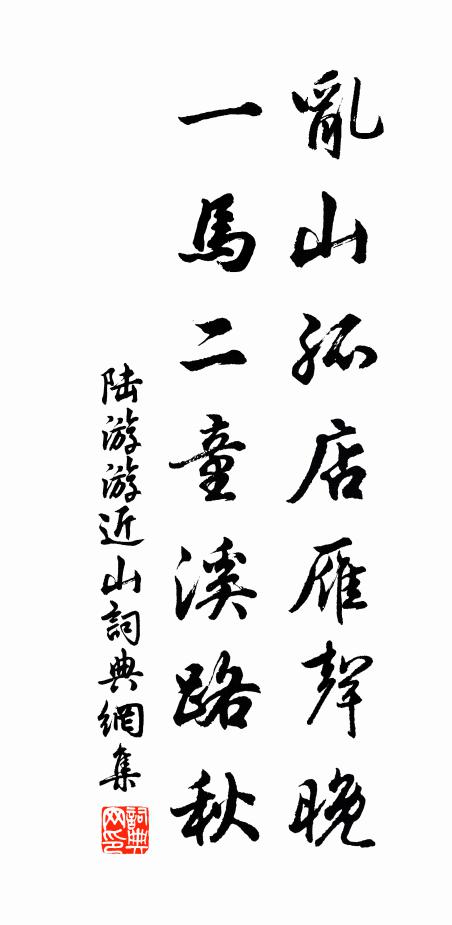 亂山孤店雁聲晚
一馬二童溪路秋
陆游游近山詞典網集
詞典网印